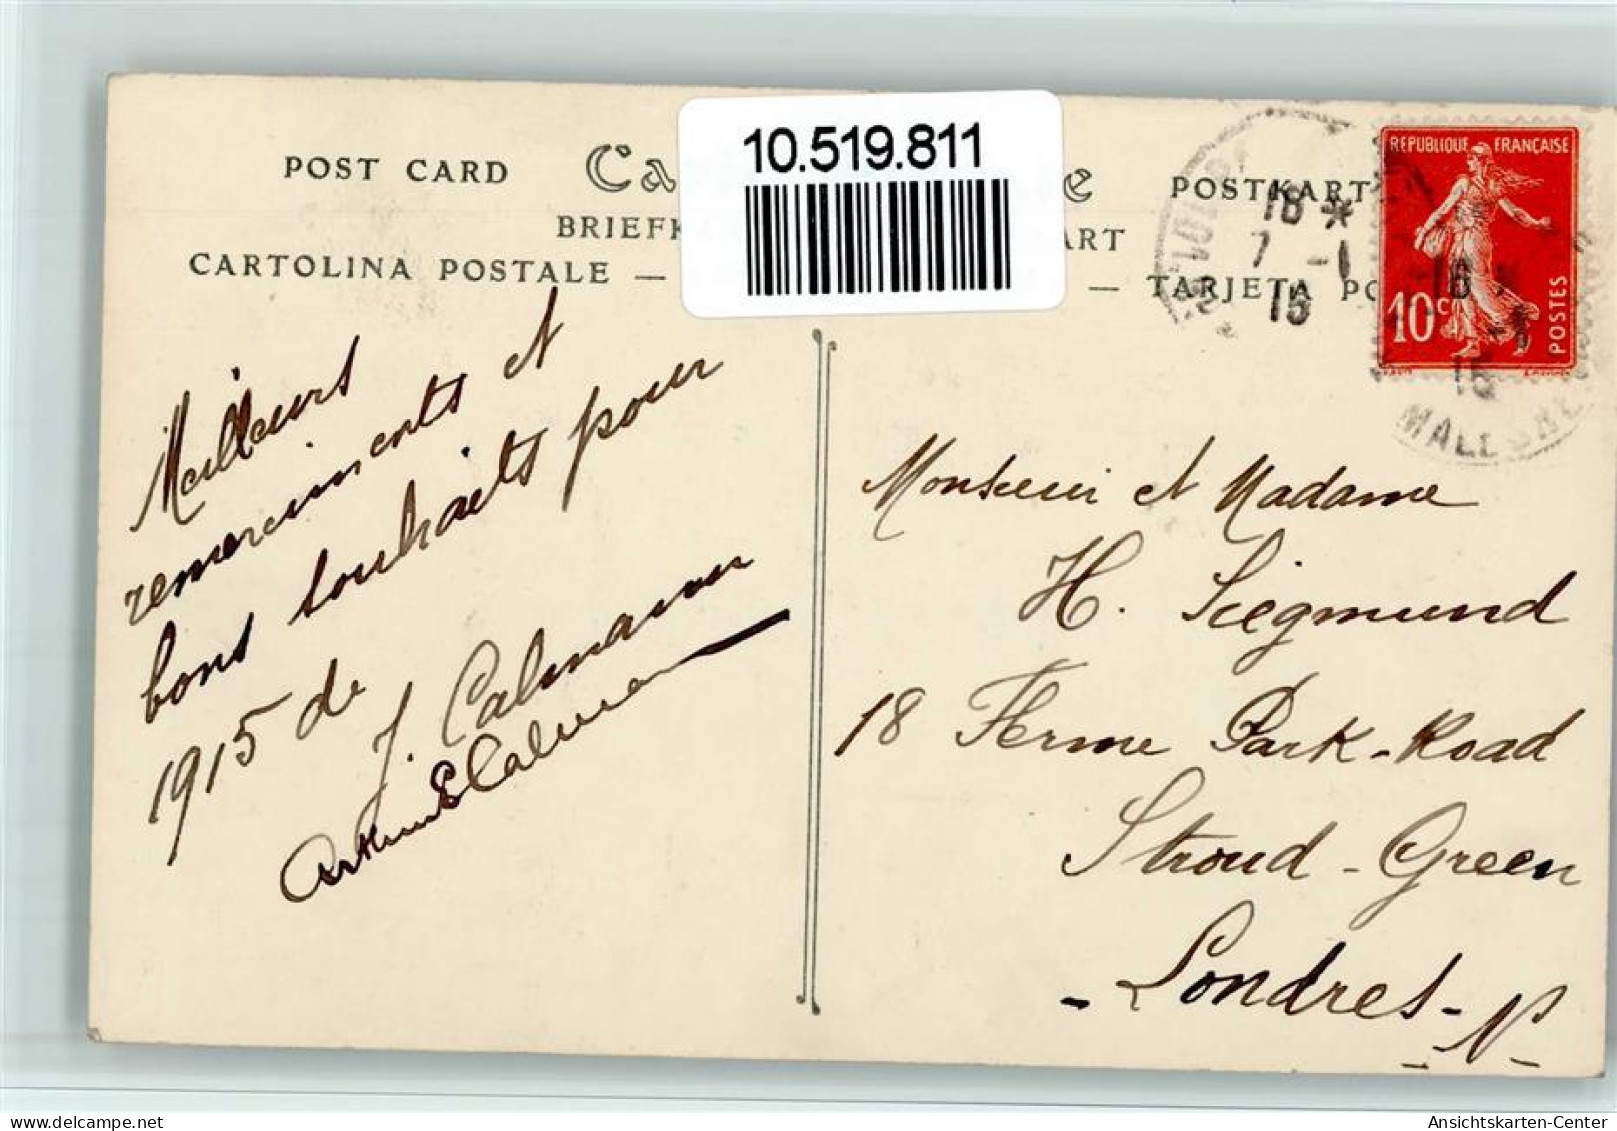 10.519.811
POST CARD Ca e POSTKART
BRIEFK ART
CARTOLINA POSTALE — — TARJETA PO
REPUBLIQUE FRANÇAISE
10c POSTES
18 *
7 -1
15
16
15
MALESHE
Meilleurs
remerciments et
bons souhaits pour
1915 de
J. Calmann
Arthur Calmann
Monsieur et Madame
H. Siegmund
18 Ferme Park-Road
Stroud-Green
- Londres -
- N -
Ansichtskarten-Center